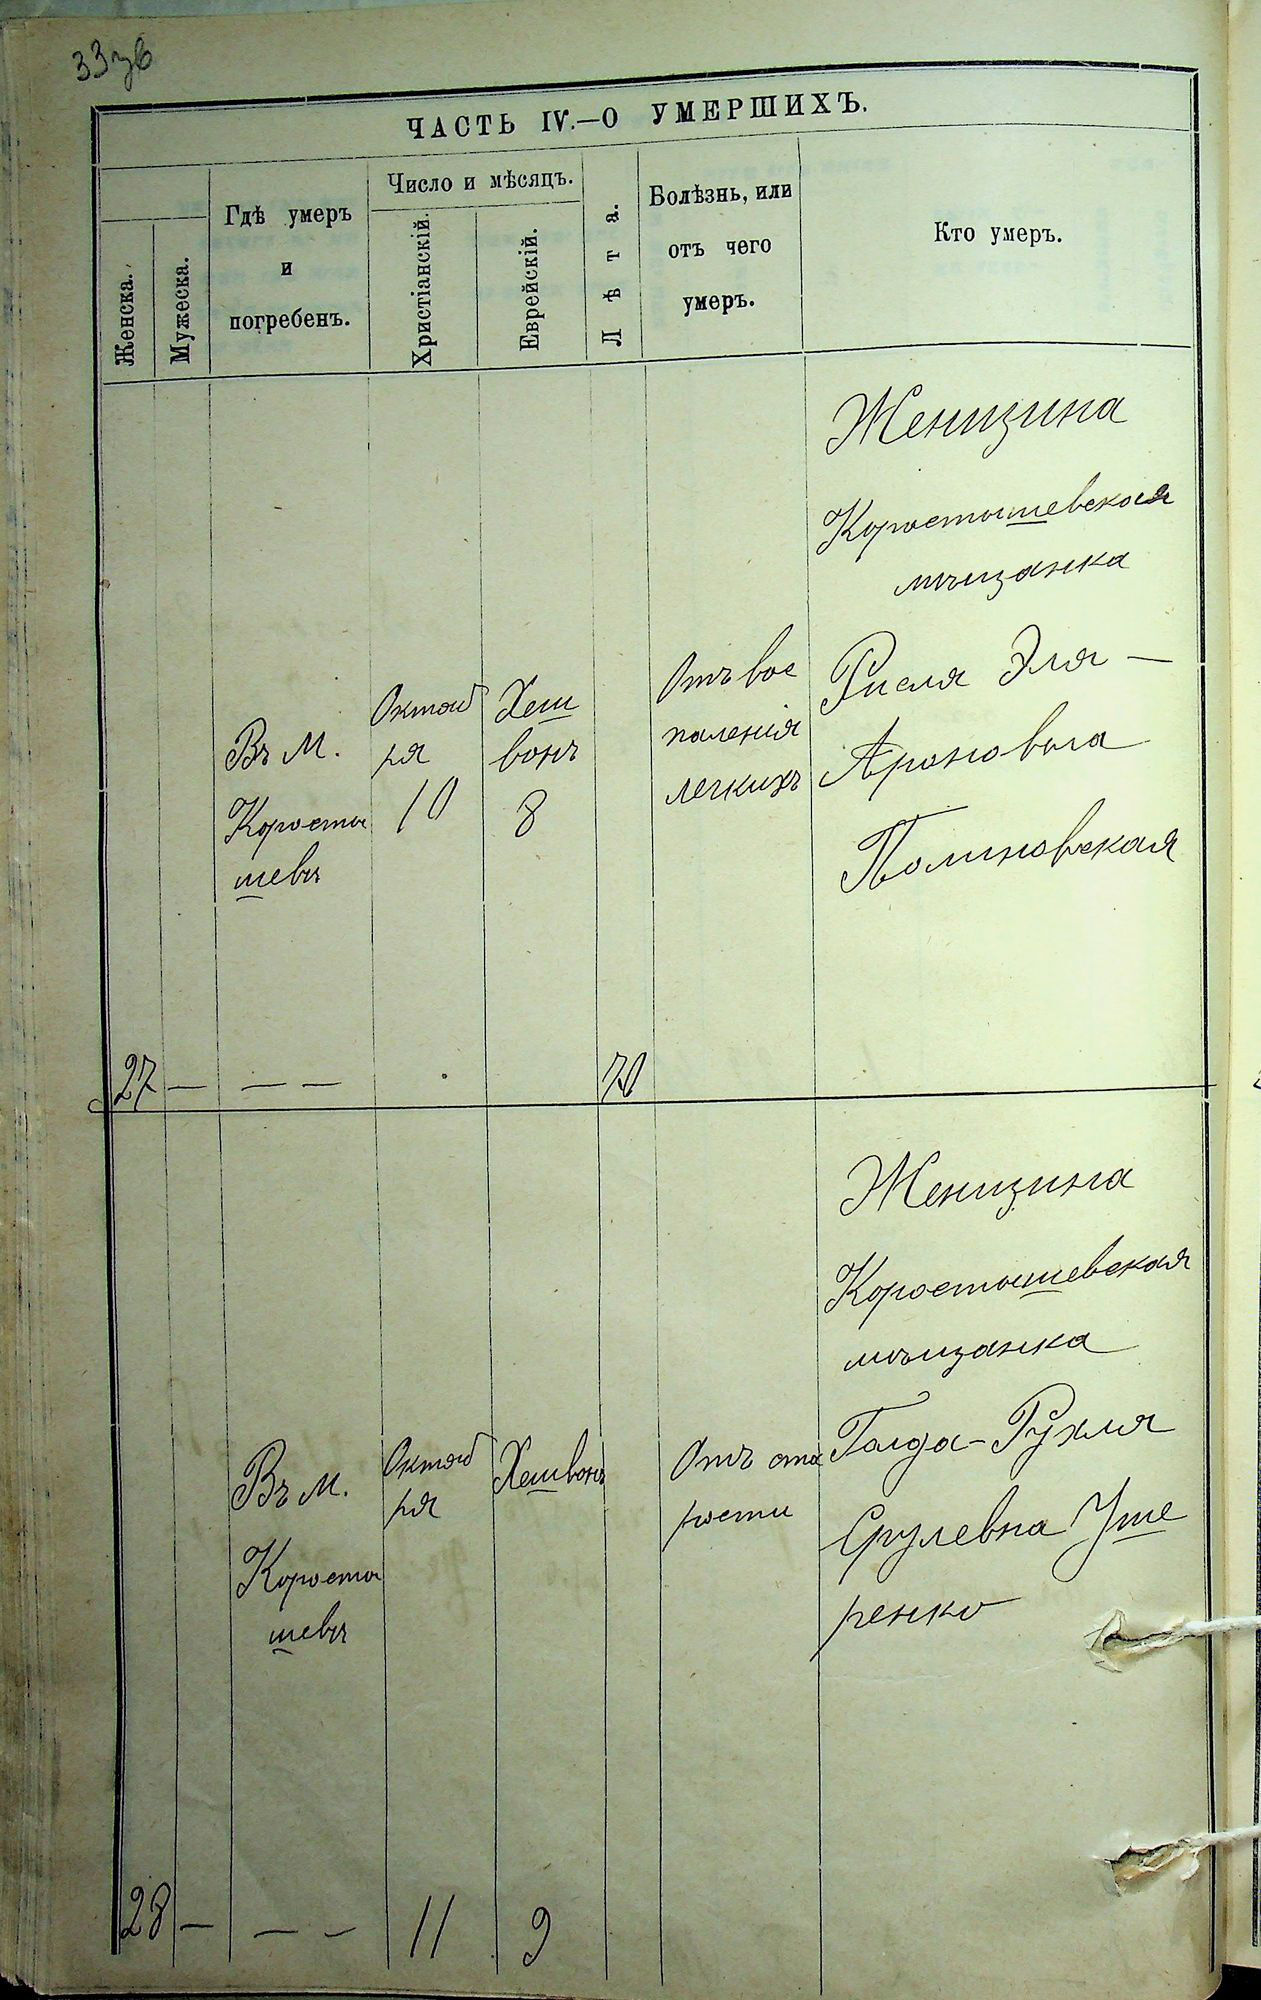 33зв
ЧАСТЬ IV.—О УМЕРШИХЪ.
Женска.
Мужеска.
Гдѣ умеръ
и
погребенъ.
Число и мѣсяцъ.
Христіанскій.
Еврейскій.
Лѣта.
Болѣзнь, или
отъ чего
умеръ.
Кто умеръ.
27 — — —
Въ М.
Коросты
шевѣ
Октяб
ря
10
Хеш
вонъ
8
70
Отъ вос
паленія
легкихъ
Женщина
Коростышевская
мѣщанка
Рисля Эля —
Ароновна
Полиновская
28 — — —
Въ М.
Коросты
шевѣ
Октяб
ря
11
Хешвонъ
9
Отъ ста
рости
Женщина
Коростышевская
мѣщанка
Голда-Рухля
Срулевна Уше
ренко